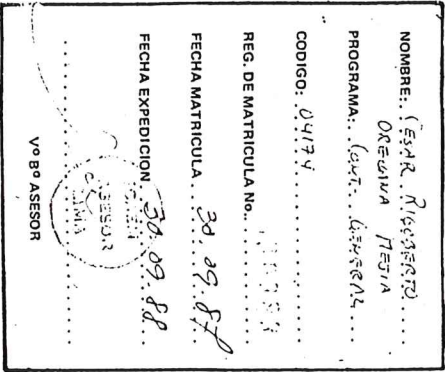 NOMBRE: CESAR RIGOBERTO
ORELLANA MEJIA
PROGRAMA: CONT. GENERAL
CODIGO: 04174
REG. DE MATRICULA No.
FECHA MATRICULA 30.09.87
FECHA EXPEDICION 30.09.88
ASESOR
LIMA
Vº Bº ASESOR